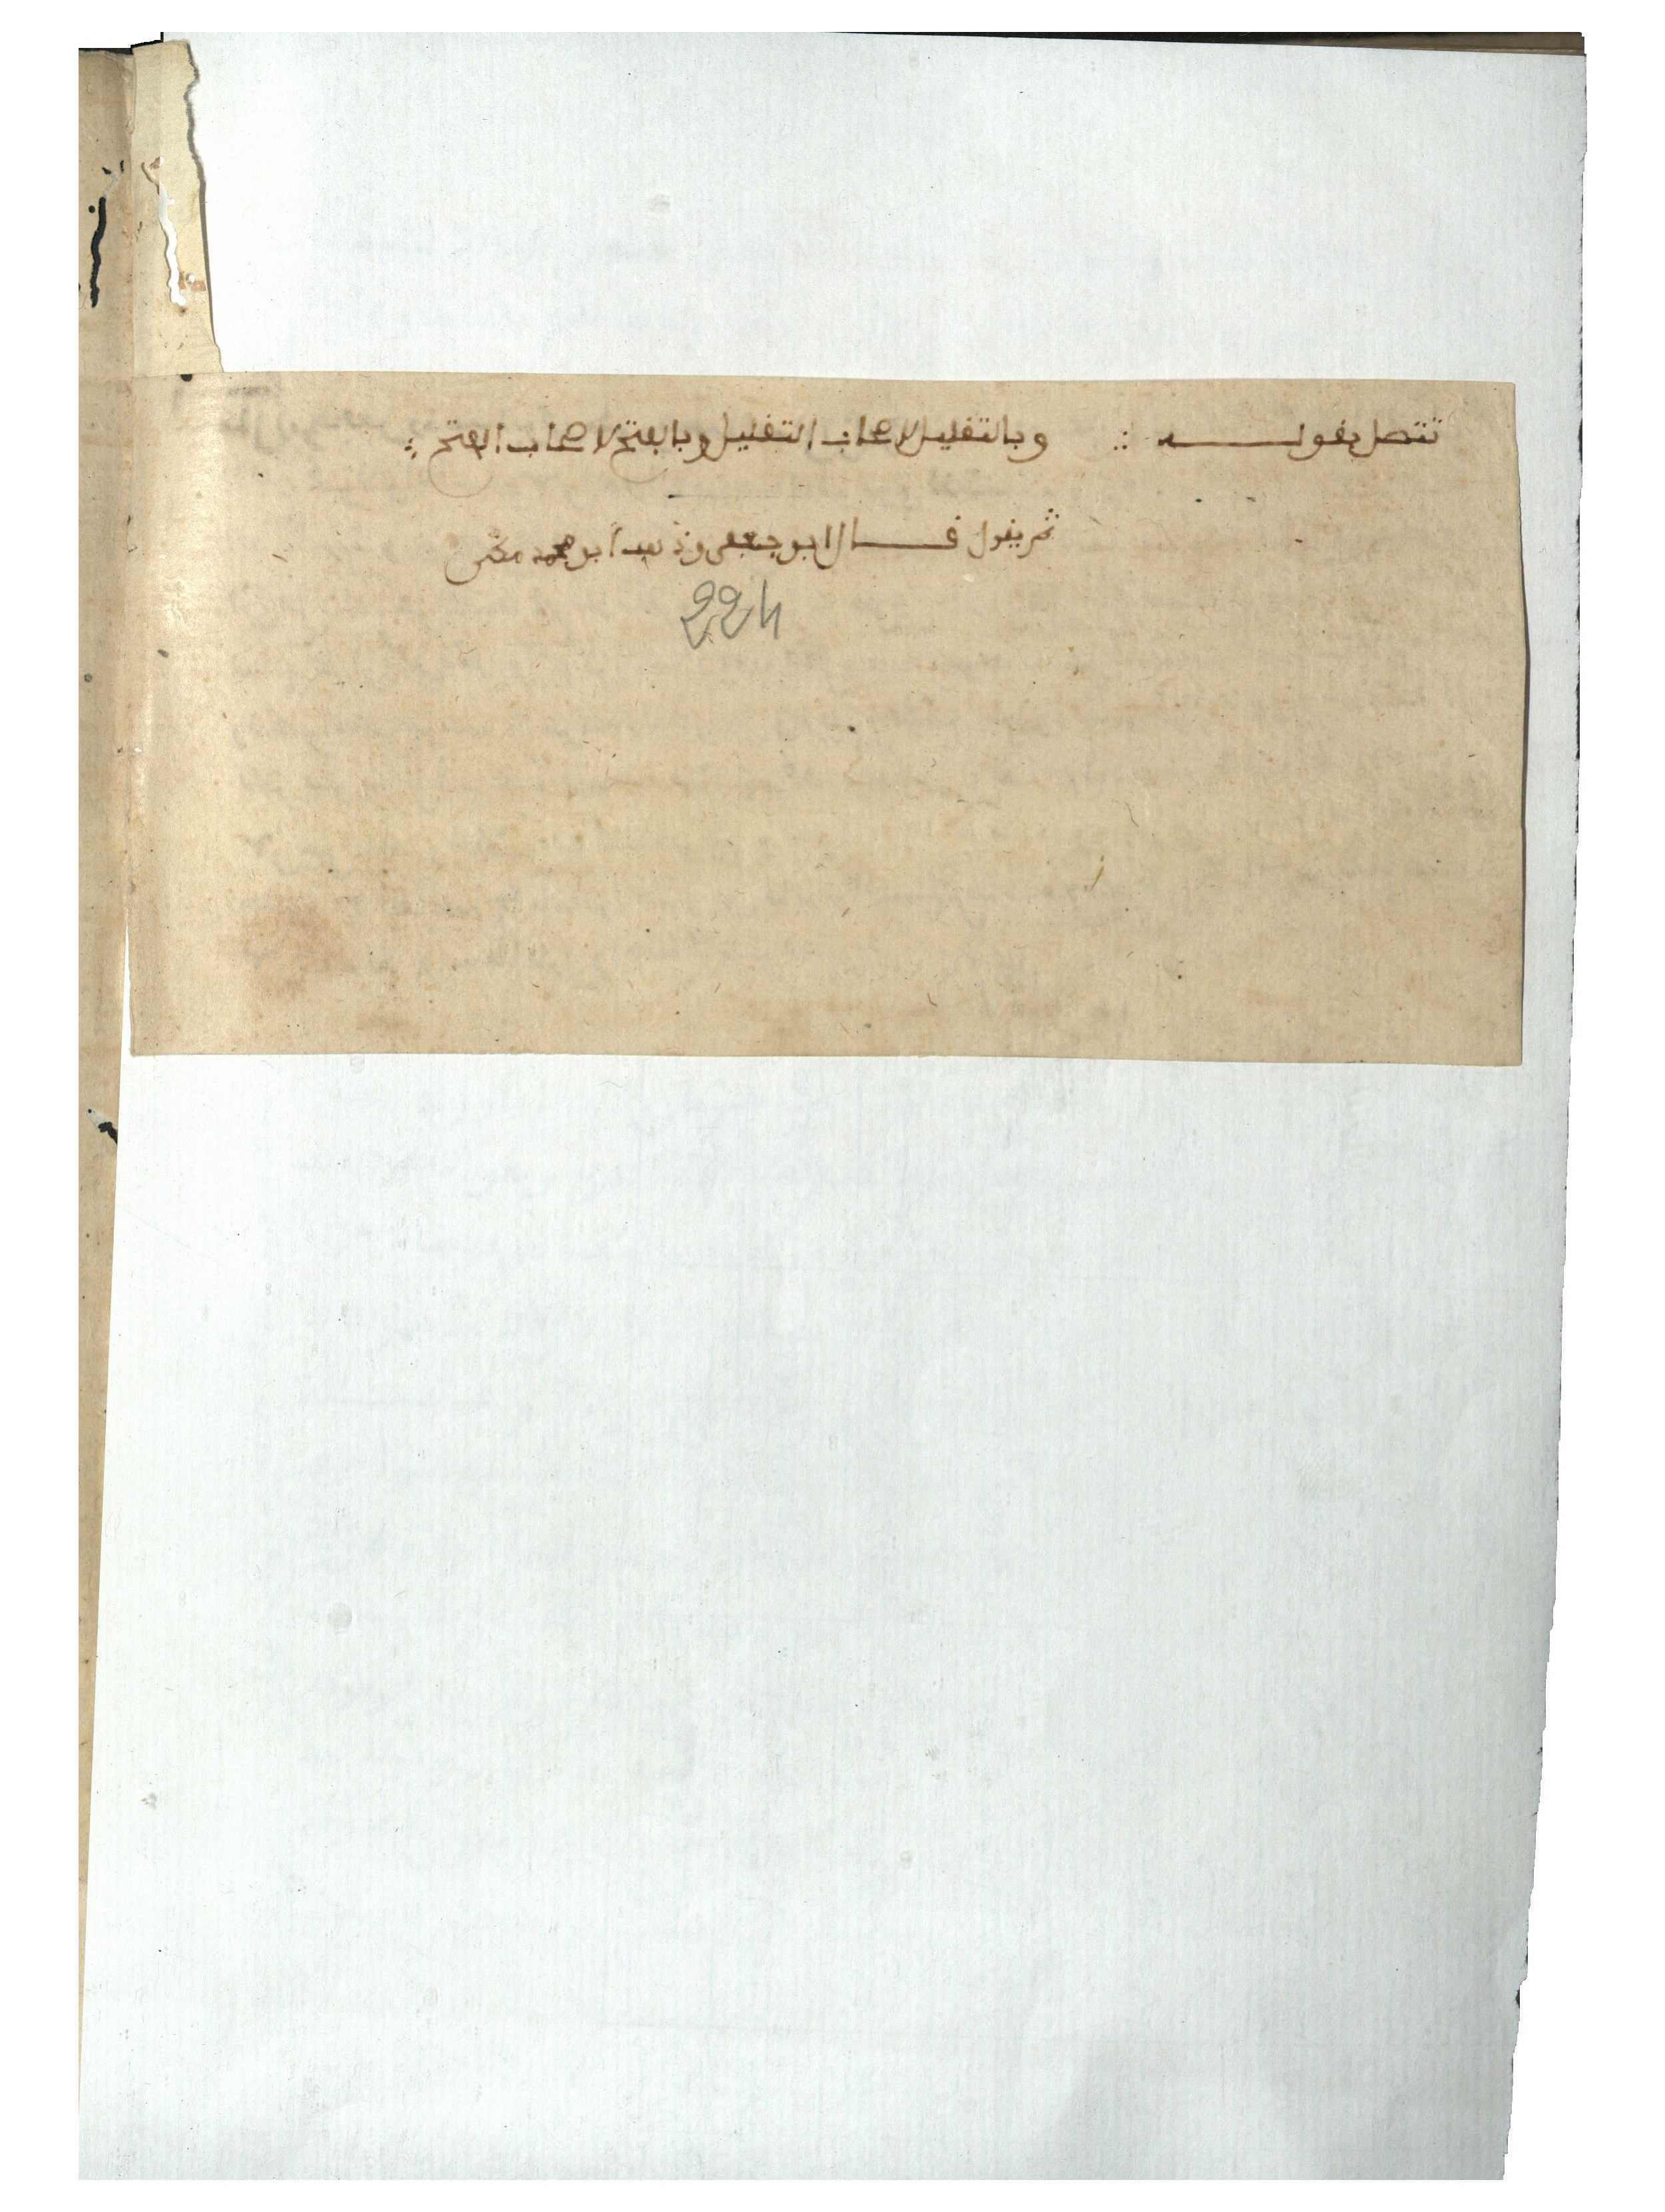 تتصل بقولـــه ∴ وبالتقليل لاصحاب التقليل وبالفتح لاصحاب الفتح ∴
ثم يقول قـــال ابو جعفر وذهب ابو محمد مكى
224